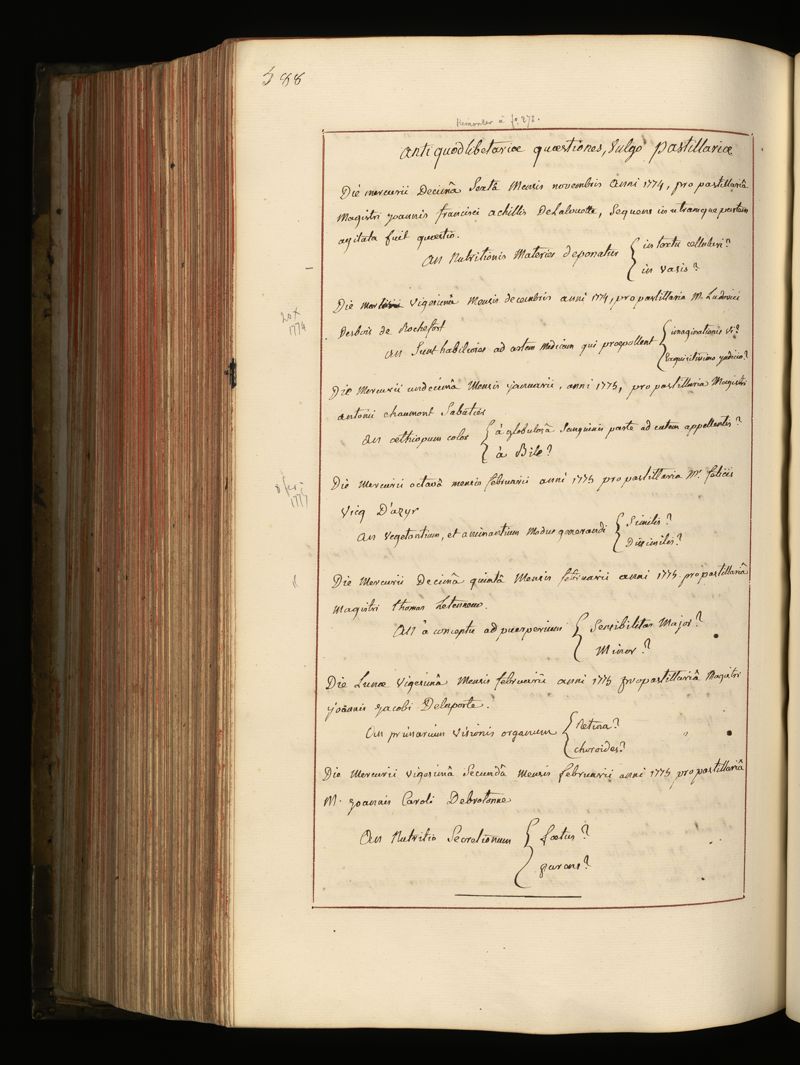 588
Remonter à fo. 278.
Antiquodlibetariæ quæstiones, Vulgo pastillariæ
Die mercurii Decimâ Sextâ Mensis novembris anni 1774, pro pastillariâ
Magistri joannis francisci achillis Delalouette, Sequens in utramque partem
agitata fuit quæstio.
An Nutritionis Materies deponatur { in textu cellulari?
in vasis?
Die Vigesimâ Mensis decembris anni 1774, pro pastillaria M. Ludovici
20 X
1774
Desbois de Rochefort
An Sunt habiliores ad artem Medicam qui præpollent { imaginationis vi?
exquisitissimo judicio?
Die Mercurii undecimâ Mensis januarii, anni 1775, pro pastillaria Magistri
antonii chaumont Sabatier
An æthiopum color { à globulosâ Sanguinis parte ad cutem appellentis?
à Bile?
Die Mercurii octavâ mensis februarii anni 1775 pro pastillaria Mri. felicis
8 fer.
Vicq D'azyr
An Vegetantium, et animantium Modus generandi { Similis?
Dissimilis?
Die Mercurii Decimâ quintâ Mensis februarii anni 1775 pro pastillariâ
Magistri thomas Leteneur.
An à conceptu ad puerperium { Sensibilitas Major?
Minor?
Die Lunæ Vigesimâ Mensis februarii anni 1775 pro pastillariâ Magistri
joannis jacobi Delaporte.
An primarium Visionis organum { Retina?
choroides?
Die Mercurii vigesimâ Secundâ Mensis februarii anni 1775 pro pastillariâ
M. joannis Caroli Debrotonne
An Nutritio Secretionum { foetus?
parens?